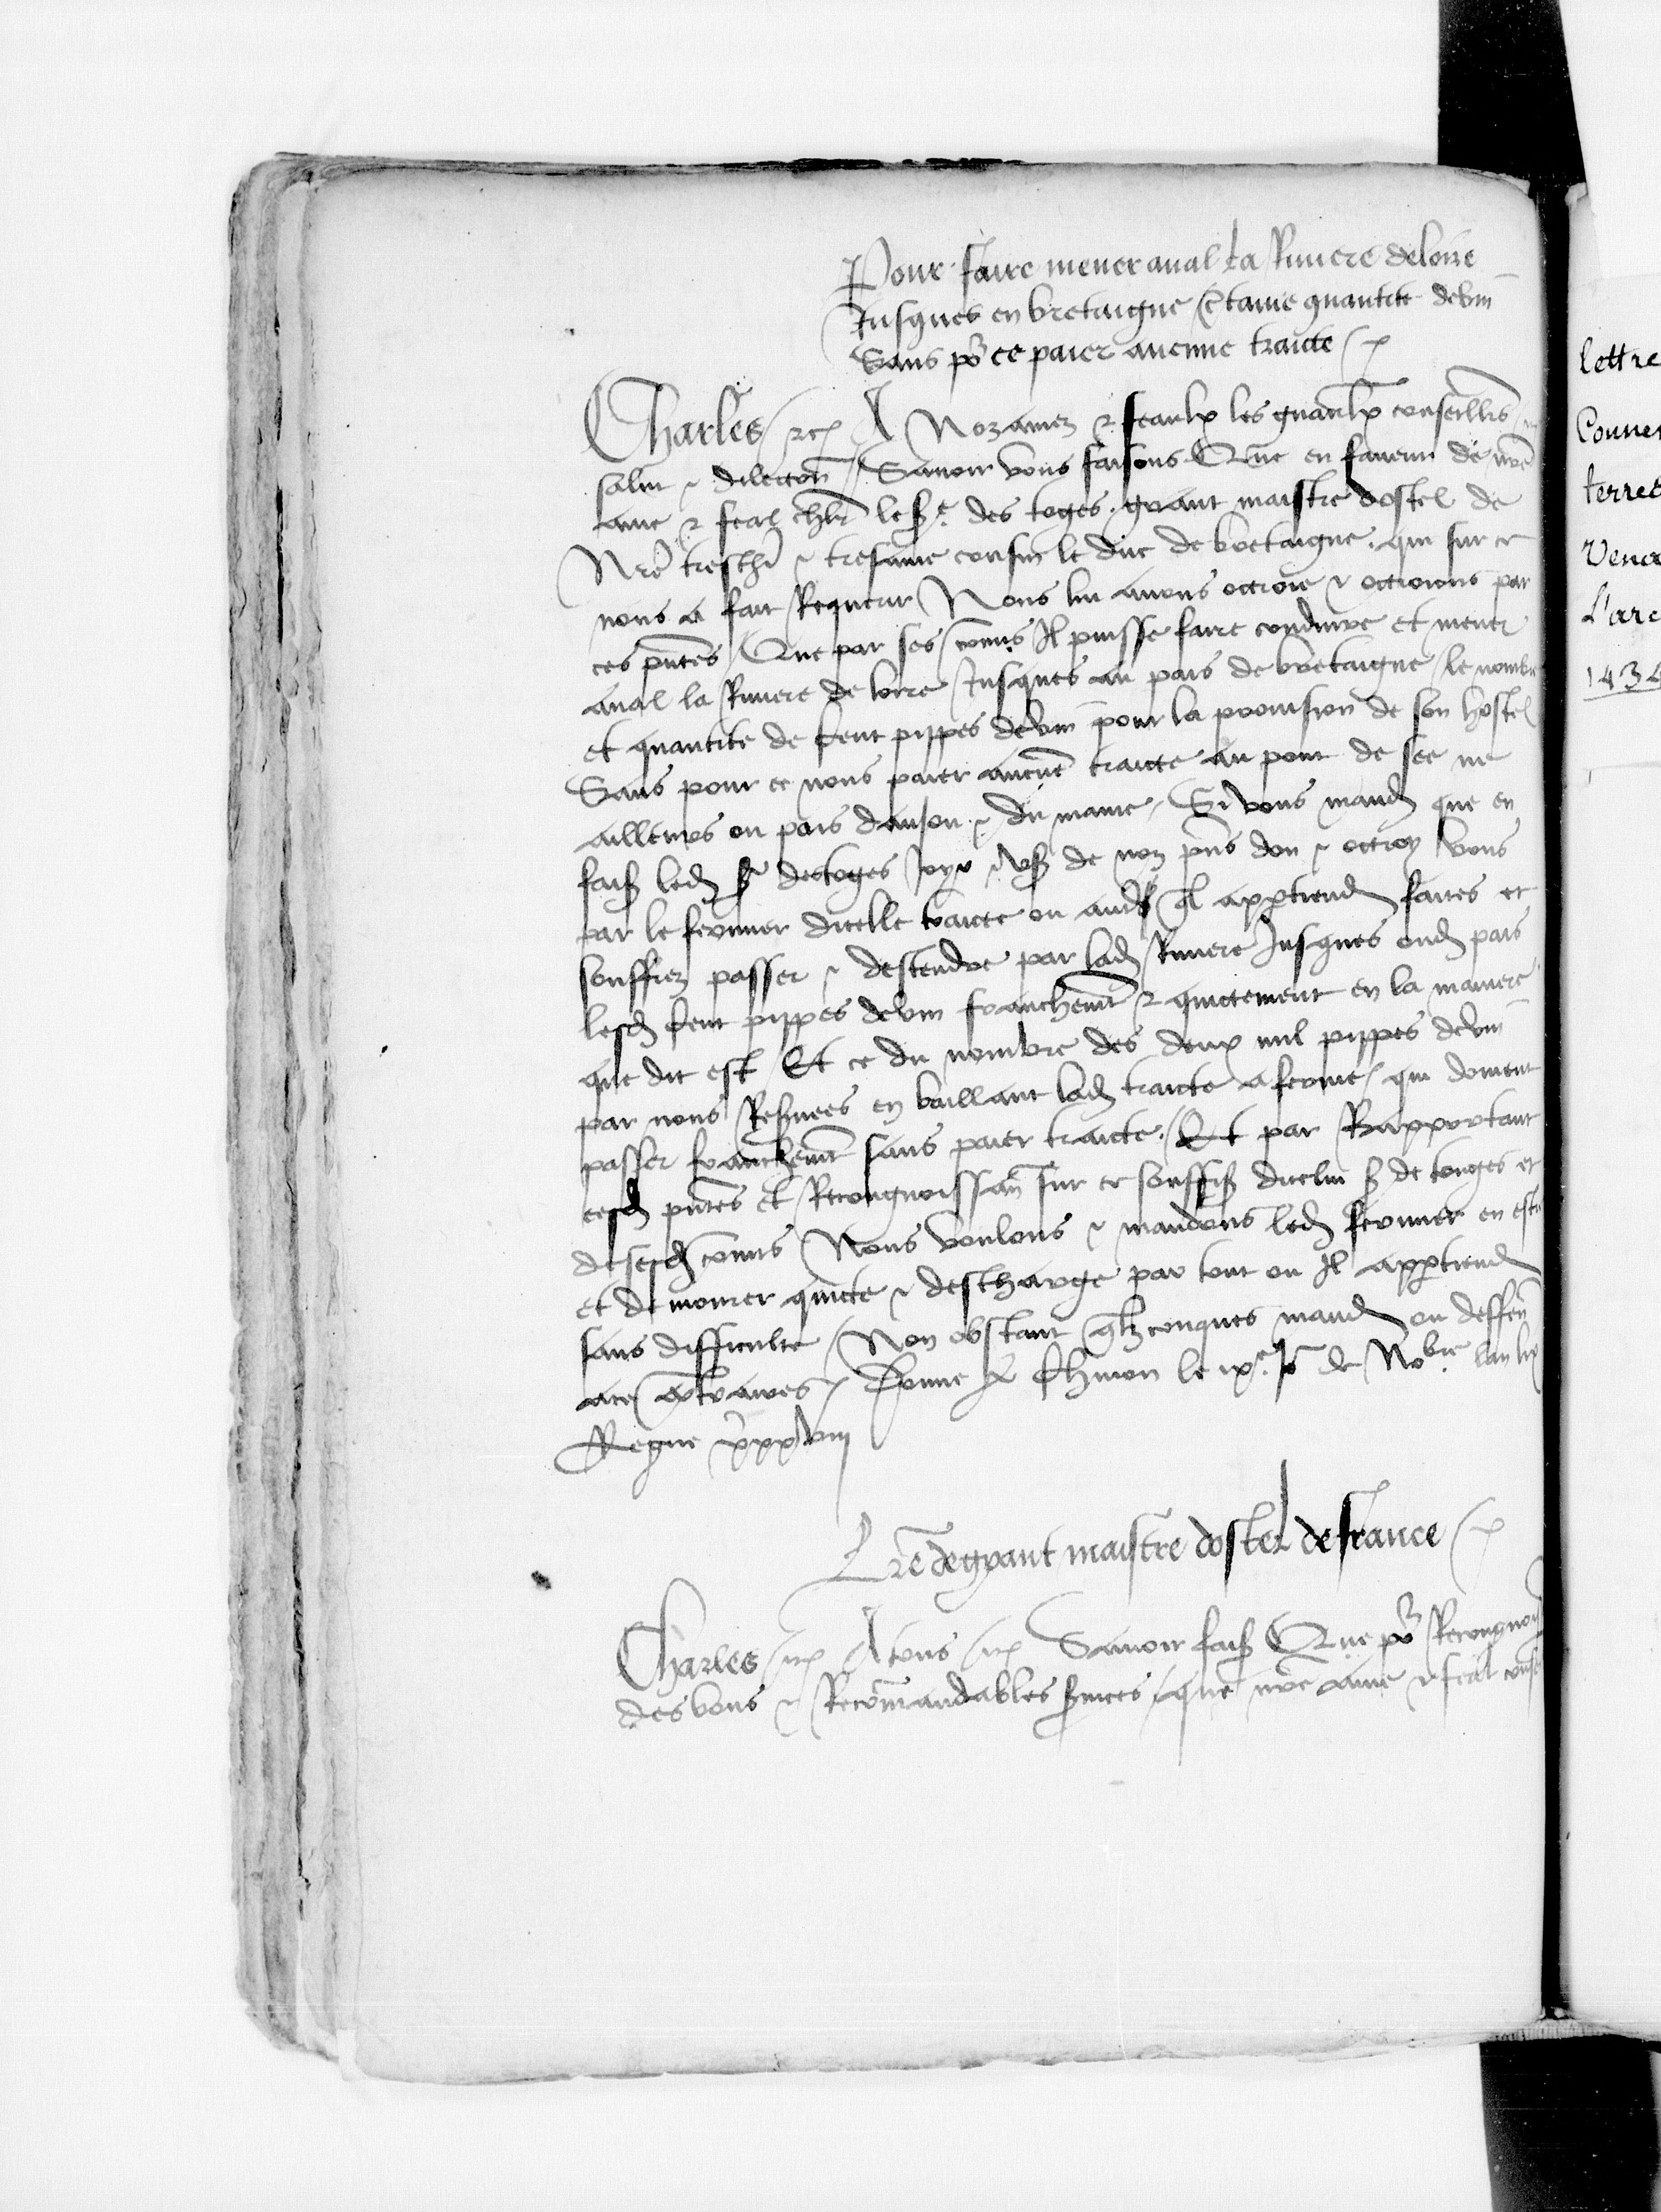 Pour faire mener aual la Riuiere deloire
Jusques en bretaigne c̃taine quantite devin
Sans po᷑ ce paier aucune traicte
Charles etc A Noz amez & feaulx les gñaulx conseillers
salut & dilection Sauoir vous faisons Que en faueur de nr̃e
ame & feal chl̃r le sr des toges grant maistre dostel de
Nr̃e treschr̃ & tresame cousin le duc de bretaigne qui sur ce
nous a fait Requerir Nous lui auons octroie & octroions par
ces pñtes Que par ses comis Il puisse faire conduire et mener
aual la Riuiere de loire Jusques au pais de bretaigne le nombre
et quantite de Cent pippes devin pour la prouision de son hostel
Sans pour ce nous paier aucune traicte au pont de see ne
ailleurs ou pais danjou & du maine Si vous mand que en
fais led sr destoges Joyr & vser de noz pñs don & octroy vous
par le fermier dicelle traicte ou autre Il appartiend faites et
souffrez passer & descendre par lad Riuiere Jusques oud pais
lesd Cent pippes devin franchemt & quictement en la maniere
que dit est Et ce du nombre des deux mil pippes devin
par nous Resuees en baillant lad traicte a ferme qui doiuent
passer franchemt sans paier traicte Et par Rapportant
cesd pñtes et Recongnoissan sur ce souffis dicelui sr de touges et
desesd comis Nous voulons & mandons led fermier en estre
et demourer quicte & descharge par tout ou Il appartiend
sans difficulte Non obstant qlzconques mand ou deffen
ace contraires Donne a Chinon le ixe Jor de Nobre lan lix
Regne xxxviij
Lr̃e degrant maistre dostel defrance
Charles etc A tous etc Sauoir fais Que po᷑ Recongnoi
des bons & Recom̃andables s̃uices que nr̃e ame & feal conse
lettre
Conuer
terres
Venda
L'arc
1434